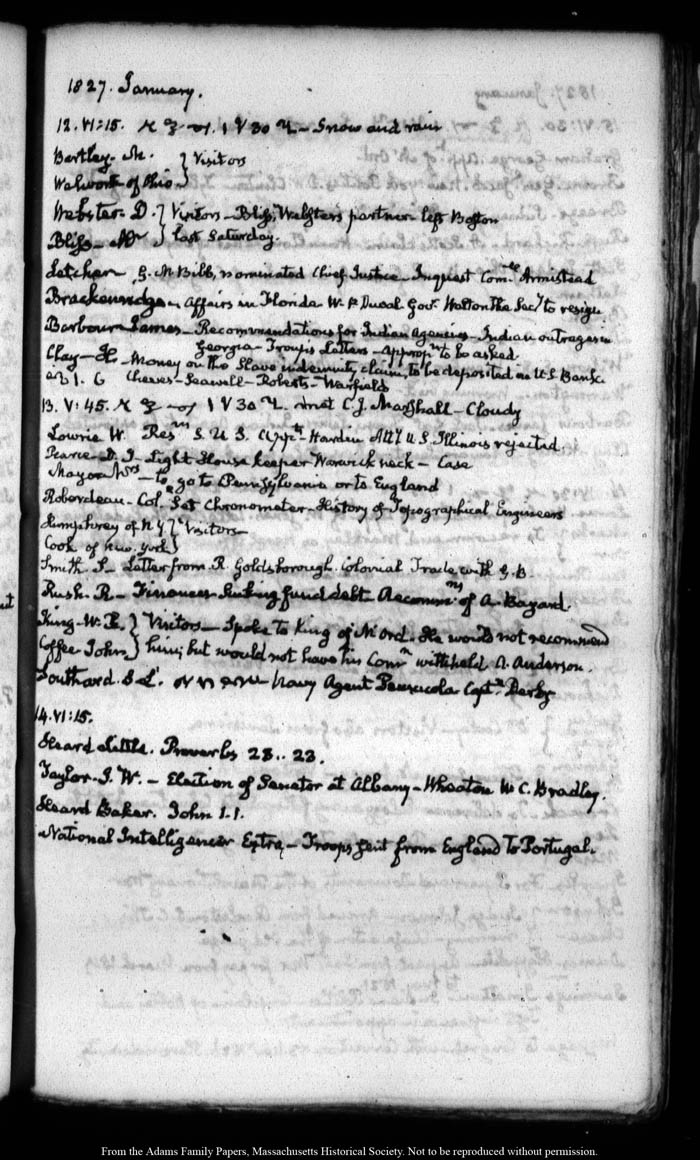 1827. January.
12. VI:15. 1 V 30 Snow and rain
Bartley. M. } Visitors
Walworth of Ohio }
Webster. D. } Visitors - Bliss, Webster's partner left Boston
Bliss - Mr } last Saturday.
Letcher G. M Bibb, nominated Chief Justice - Inquest Armistead
Brackenridge - Affairs in Florida W. P Duval Govr. Walton the Secy to resign
Barbour James - Recommendations for Indian Agencies - Indian outrages in
Georgia - Troup's Letters - Appropns to be asked
Clay - H. - Money on the Slave indemnity claim, to be deposited in U.S Bank.
Cheves - Seawell - Roberts - Warfield
13. V:45. 1 V 30 met C. J. Marshall - Cloudy
Lowrie W. Resns S. U S. Hardin Atty U S. Illinois rejected.
Pearce D. J - Light House keeper Warwick neck - Case
Mayo Mrs - to go to Pennsylvania or to England
Roberdeau - Col. Set Chronometer - History of Topographical Engineers
Humphrey of N Y } Visitors -
Cook of New. York }
Smith S - Letter from R. Goldsborough. Colonial Trade with G. B.
Rush. R - Finances Sinking fund debt Recommns. of A. Bayard.
King - W. R. } Visitors - Spoke to King of M'Ord. He would not recommend
Coffee John } him; but would not have his Comn withheld A. Anderson.
Southard. S L. Navy Agent Pensacola Captn. Derby
14. VI:15.
Heard Little. Proverbs 23..23.
Taylor. J. W. - Election of Senator at Albany - Wheaton W C. Bradley.
Heard Baker. John 1.1.
National Intelligencer Extra - Troops sent from England to Portugal.
From the Adams Family Papers, Massachusetts Historical Society. Not to be reproduced without permission.